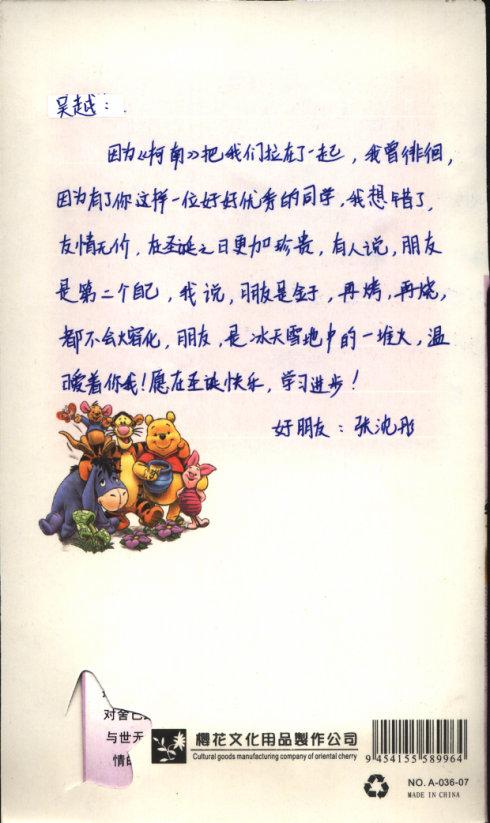 吴越：
因为《柯南》把我们拉在了一起，我曾徘徊，
因为有了你这样一位好好优秀的同学，我想错了，
友情无价，在圣诞之日更加珍贵，有人说，朋友
是第二个自己，我说，朋友是金子，再烤，再烧，
都不会火熔化，朋友，是冰天雪地中的一堆火，温
暖着你我！愿在圣诞快乐，学习进步！
好朋友：张沈彤
对舍己
与世无
情的
樱花文化用品製作公司
Cultural goods manufacturing company of oriental cherry
9 454155 589964
NO. A-036-07
MADE IN CHINA